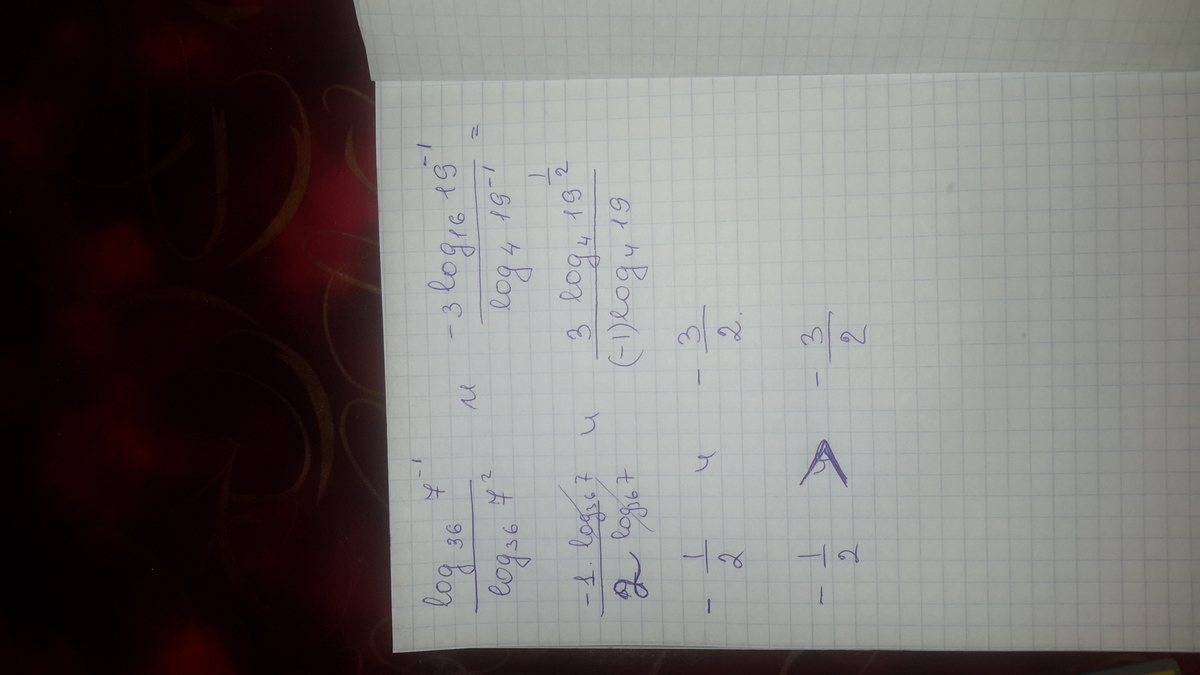 log₃₆ 7⁻¹ / log₃₆ 7² и -3 log₁₆ 19⁻¹ / log₄ 19⁻¹ =
-1 · log₃₆ 7 / 2 log₃₆ 7 и 3 log₄ 19^(1/2) / (-1) log₄ 19
- 1/2 и - 3/2.
- 1/2 > - 3/2